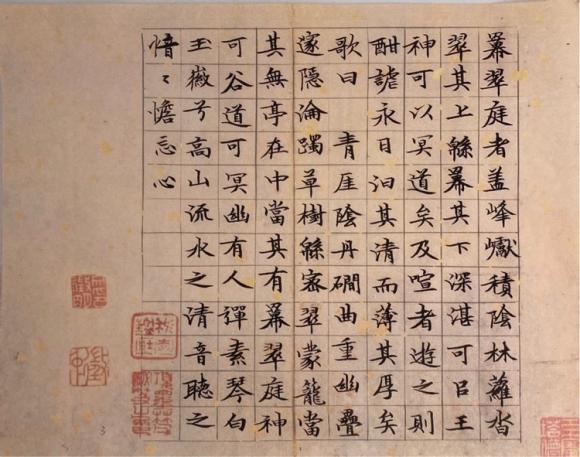 冪翠庭者盖峰巘積陰林蘿沓
翠其上緜冪其下深湛可㠯王
神可以冥道矣及喧者遊之則
酣謔永日汩其清而薄其厚矣
歌曰 青崖陰丹磵曲重幽疊
邃隱淪躅草樹緜宻翠蒙籠當
其無亭在中當其有冪翠庭神
可谷道可冥幽有人彈素琴白
玉徽兮高山流水之清音聽之
愔〻憺忘心